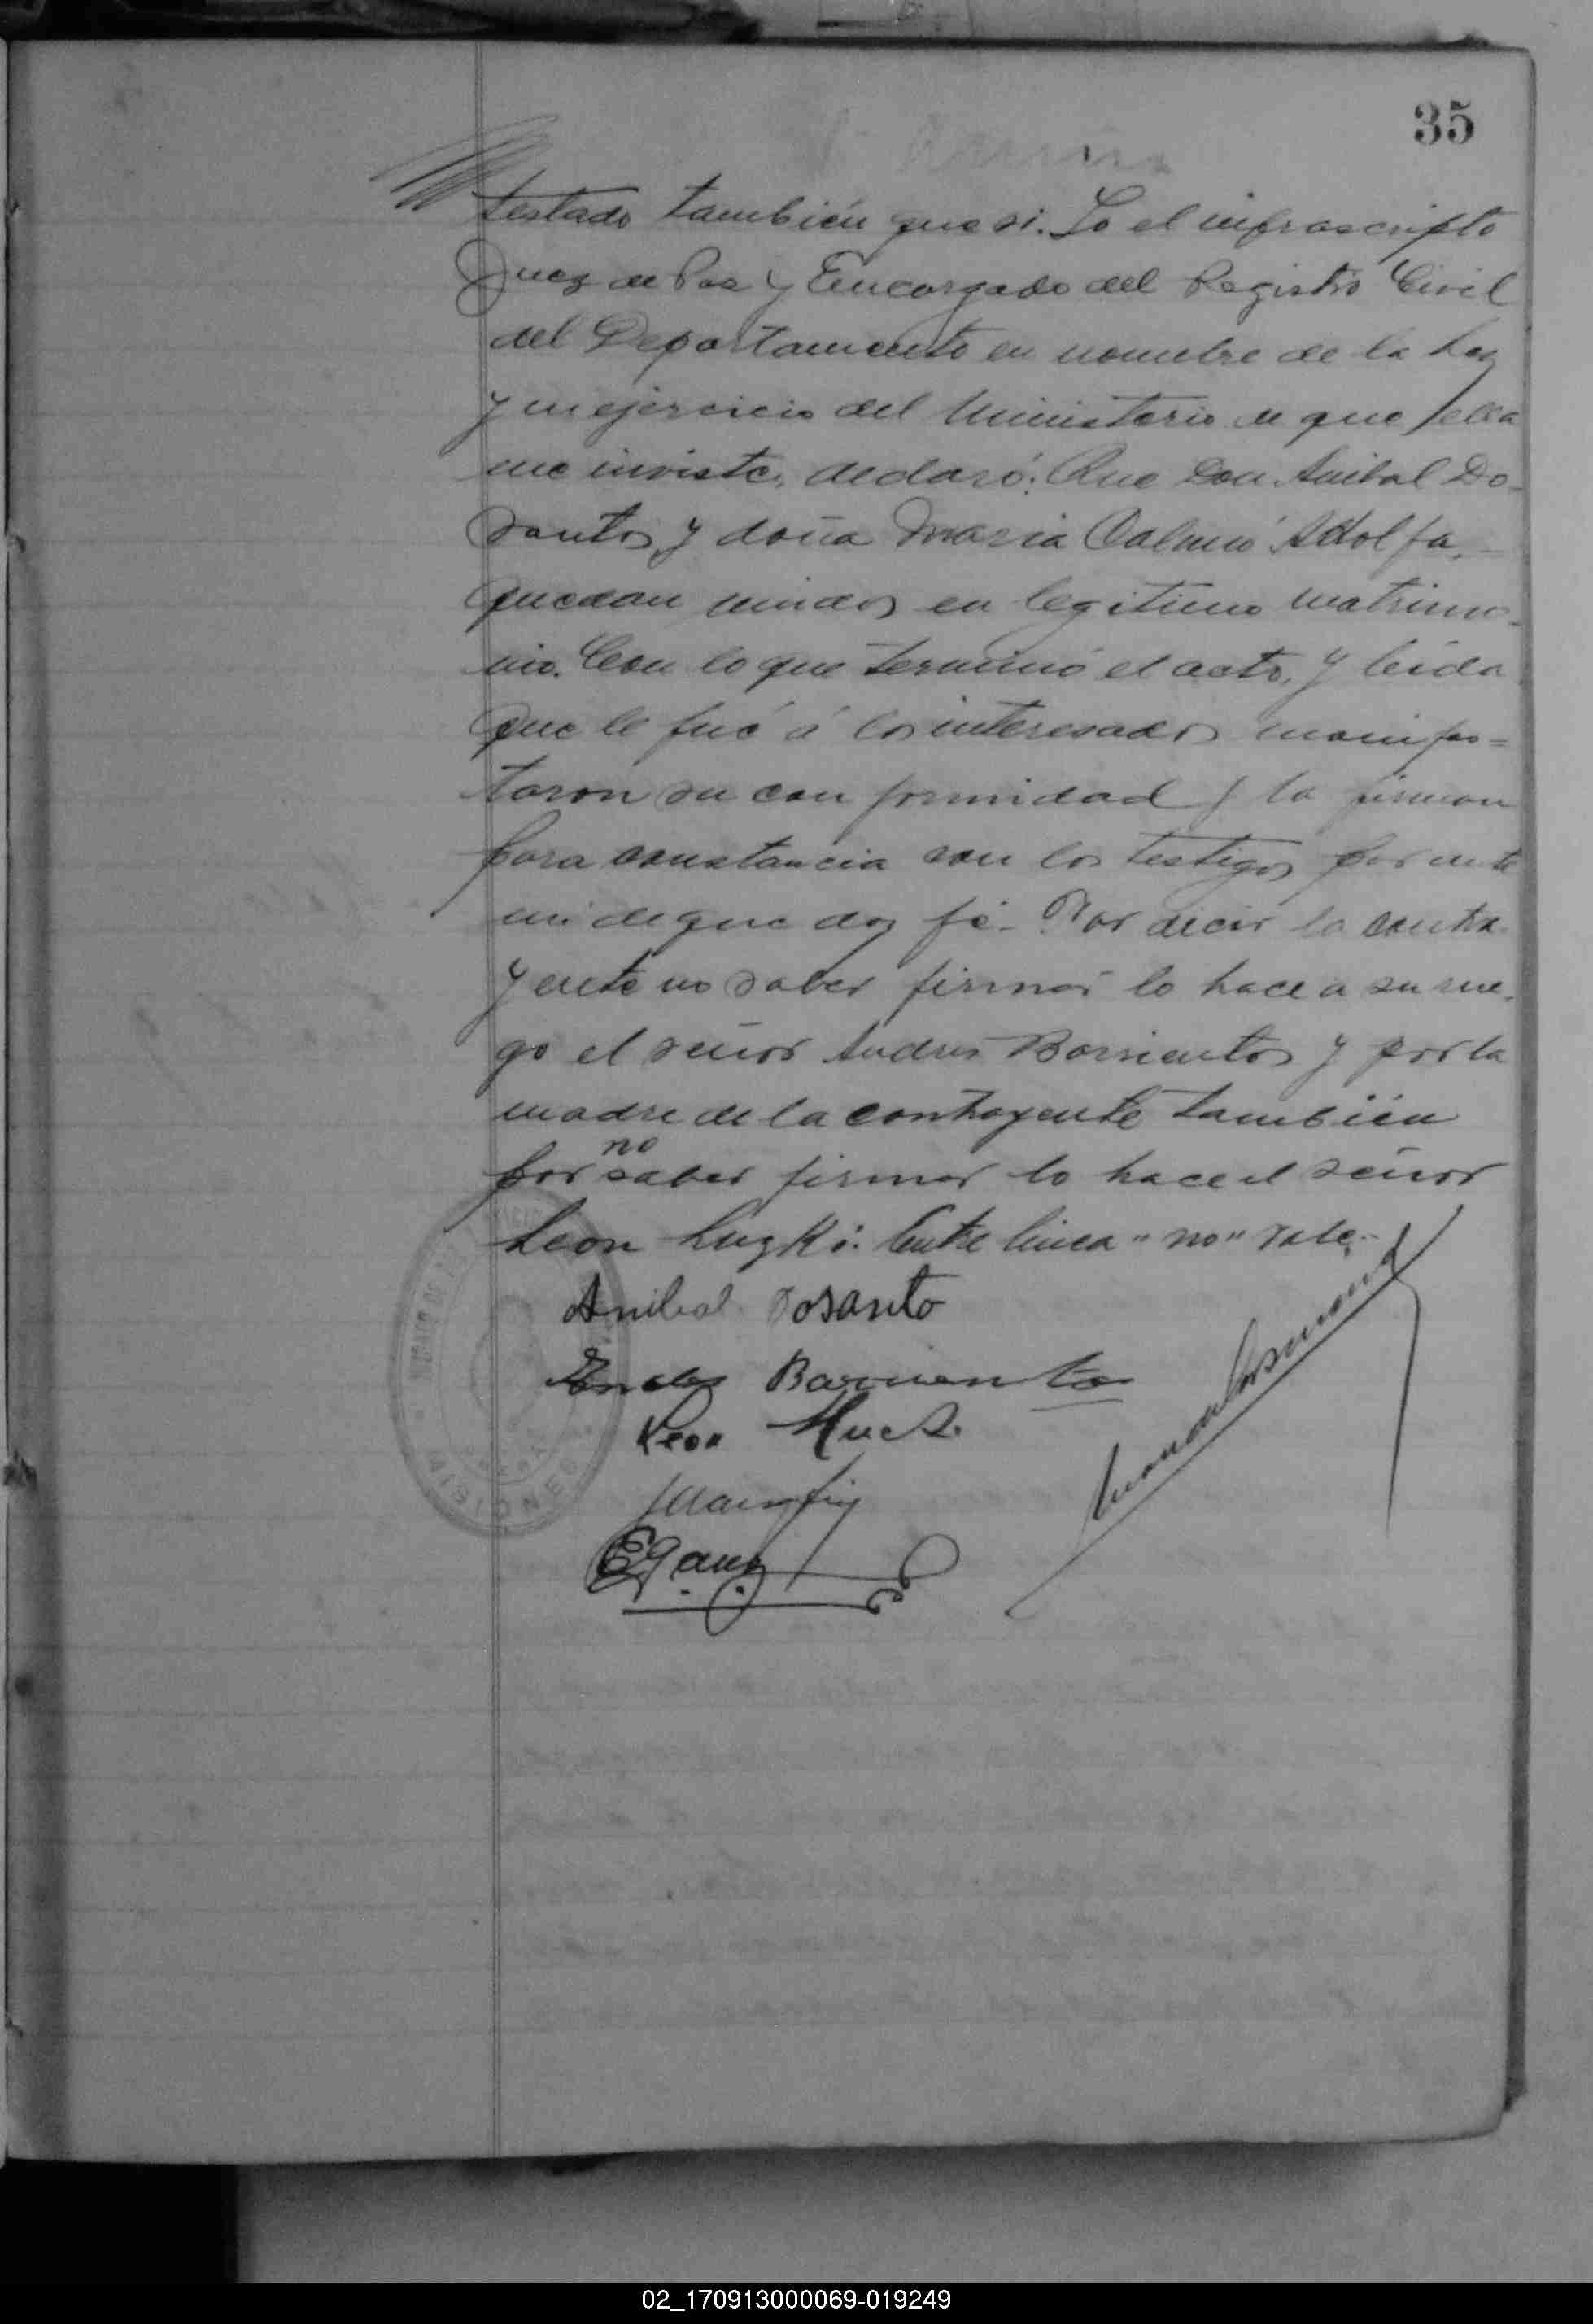 35
testado también que si. Yo el infrascripto
Juez de Paz y Encargado del Registro Civil
del Departamento en nombre de la Ley
y en ejercicio del Ministerio de que ella
me inviste, declaró: Que Don Anibal Do-
santos y doña Maria Adolfa,
quedan unidos en legitimo matrimo-
nio. Con lo que terminó el acto, y leida
que le fué á los interesados manifes=
taron su conformidad y la firman
para constancia con los testigos por ante
mi de que doy fé. Por decir la contra-
yente no saber firmar lo hace a su rue-
go el señor Andres Barrientos y por la
madre de la contrayente también
por no saber firmar lo hace el señor
Leon. Entre linea "no" vale.-
Anibal Dosanto
Andes Barrientos
Leon
MISIONES
02_170913000069-019249